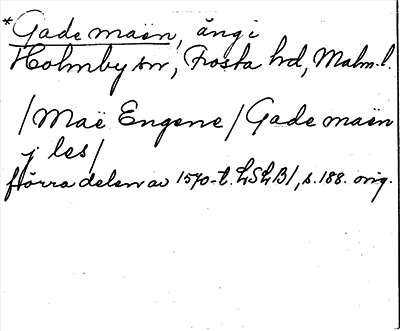 *Gade maen, äng i
Holmby sn, Frosta hd, Malm.l.
/Maë Engene/Gade maen
j les/
förra delen av 1570-t. LSLB/, s.188. orig.